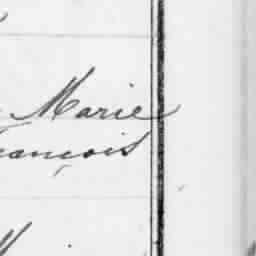 Marie
rançois